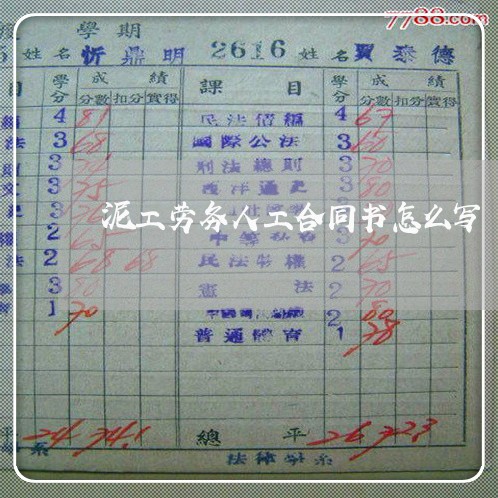 7788.com
學期
姓名 忻鼎明 2616 姓名 賈泰德
目 學分 成績 課目 學分 成績
分數 扣分 實得 分數 扣分 實得
4 81 民法債編 4 67
法 3 68 國際公法 3 60
3 刑法總則 3 70
3 75 西洋通史 3 80
3
泥工劳务人工合同书怎么写
2 65 3 70
法 2 68 68 民法物權 2 65
3 80 憲法 2 70
1 70 2 80
普通體育 1 78
平 24 74.1 總平 26 72.3
系 法律學系